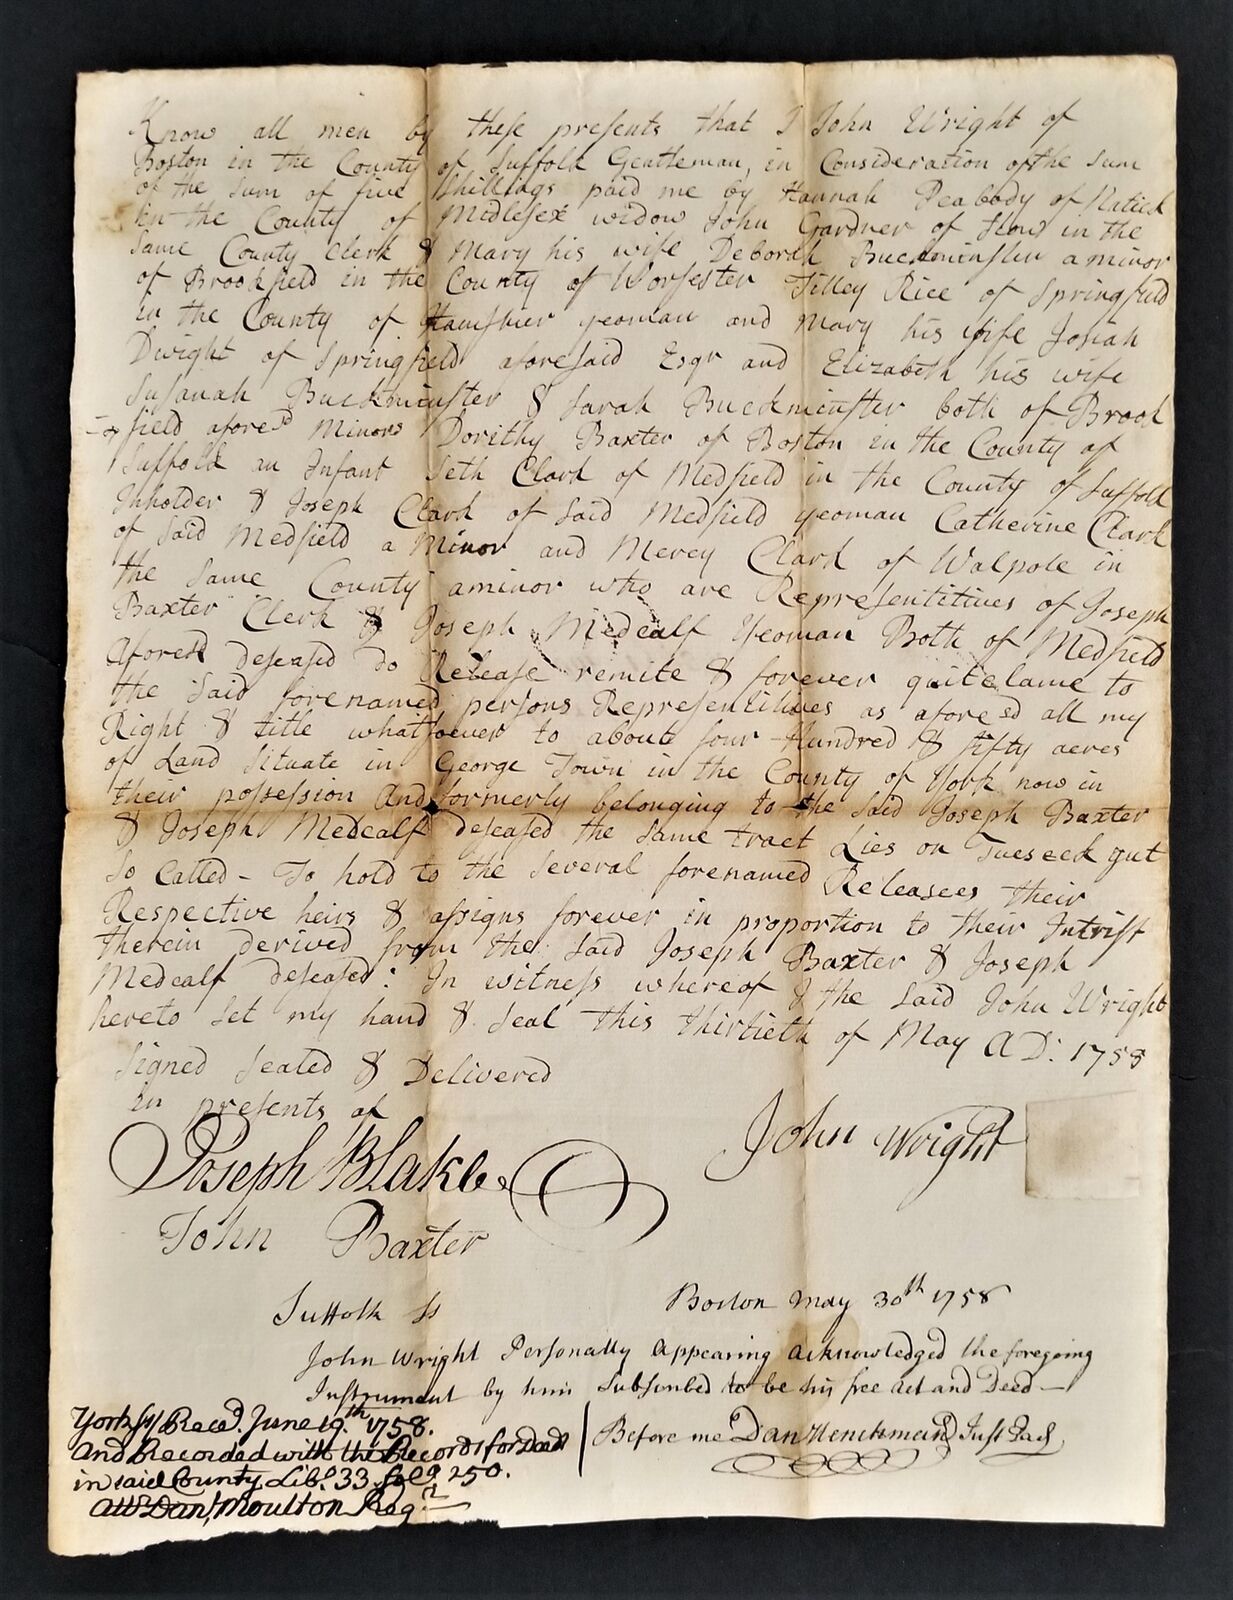 Know all men by these presents that I John Wright of
Boston in the County of Suffolk Gentleman, in Consideration of the sum
of the sum of five shillings paid me by Hannah Peabody of Natick
in the County of Midlesex widow John Gardner of Stow in the
same County Clerk & Mary his wife Deborah Buckminster a minor
of Brookfield in the County of Worsester Tilley Rice of Springfield
in the County of Hamshier yeoman and Mary his wife Josiah
Dwight of Springfield aforesaid Esqr and Elizabeth his wife
Susanah Buckminster & Sarah Buckminster both of Brook
field afores'd Minors Dorithy Baxter of Boston in the County of
Suffold an Infant Seth Clark of Medfield in the County of Suffolk
Inholder & Joseph Clark of said Medfield yeoman Catherine Clark
of said Medfield a Minor and Mercy Clark of Walpole in
the same County aminor who are Representitives of Joseph
Baxter Clerk & Joseph Medcalf Yeoman Both of Medfield
Aforesd desesased do Release remite & forever quiteclame to
the said forenamed persons Representitives as aforesd all my
Right & title whatsoever to about four Hundred & fifty acres
of Land Situate in George Town in the County of York now in
their possession And formerly belonging to the said Joseph Baxter
& Joseph Medcalf desesased the same tract Lies on Tueseck gut
so Called - To hold to the several forenamed Releasees their
Respective heirs & assigns forever in proportion to their Intrist
therein derived from the said Joseph Baxter & Joseph
Medcalf desesased: In witness whereof I the said John Wright
hereto set my hand & seal this thirtieth of May A D: 1758
Signed Sealed & Delivered
in presents of
John Wright
Joseph Blake
John Baxter
Suffolk ss Boston May 30th 1758
John Wright Personally Appearing Acknowledged the foregoing
Instrument by him Subscribed to be his free Act and Deed —
Before me Dan Henchman Just Pac
York ss Reced. June 19th 1758.
And Recorded with the Records for Deeds
in said County Libo. 33 folo 250.
Att Danl. Moulton Regr.